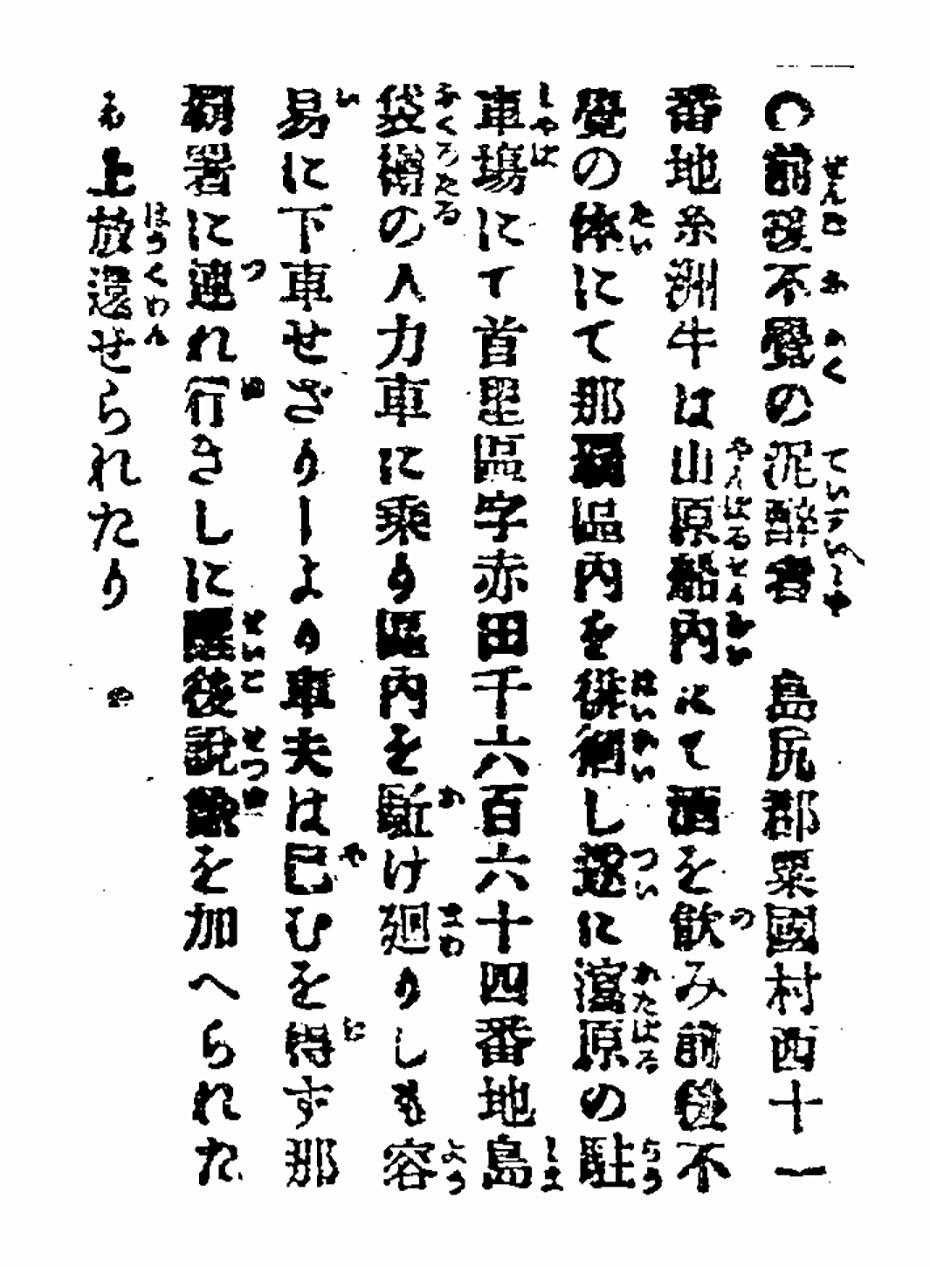 ○前後不覺の泥醉者　島尻郡粟國村西十一
番地糸洲牛は山原船内にて酒を飲み前後不
覺の体にて那覇區内を徘徊し遂に潟原の駐
車塲にて首里區字赤田千六百六十四番地島
袋樽の人力車に乘り區内を駈け廻りしも容
易に下車せざりしより車夫は已むを得ず那
覇署に連れ行きしに醒後説諭を加へられた
る上放還せられたり